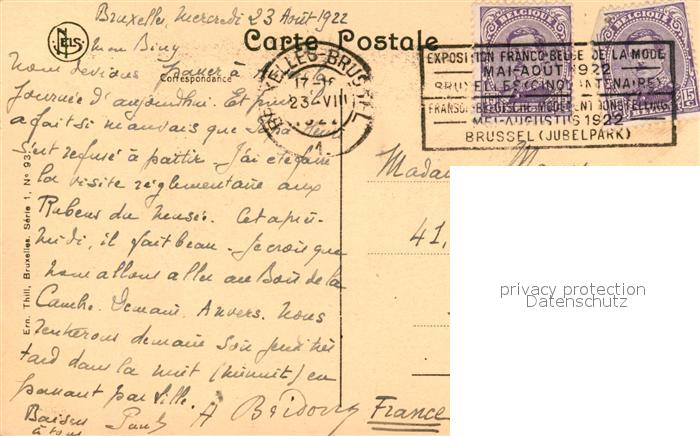 Bruxelles, Mercredi 23 Août 1922
NELS
Mon
Carte Postale
Correspondance
Nous devions passer à
journée d'aujourd'hui. Et puis il
a fait si mauvais que
s'est refusé à partir. J'ai été faire
la visite réglementaire aux
Rubens du Musée. Cet après-
midi, il fait beau. Je crois que
nous allons aller au Bois de la
Cambre. Demain, Anvers. Nous
rentrerons demain soir jeudi très
tard dans la nuit (minuit) en
passant par Lille.
Baisers
à tous
Ern. Thill, Bruxelles. Série 1, No 93
BRUXELLES-BRUSSEL
23-VIII
1922
BELGIQUE
BELGIQUE
15
EXPOSITION FRANCO-BELGE DE LA MODE
MAI-AOUT 1922
BRUXELLES (CINQUANTENAIRE)
FRANSCH-BELGISCHE MODETENTOONSTELLING
MEI-AUGUSTUS 1922
BRUSSEL (JUBELPARK)
Madame
41,
privacy protection
Datenschutz
France